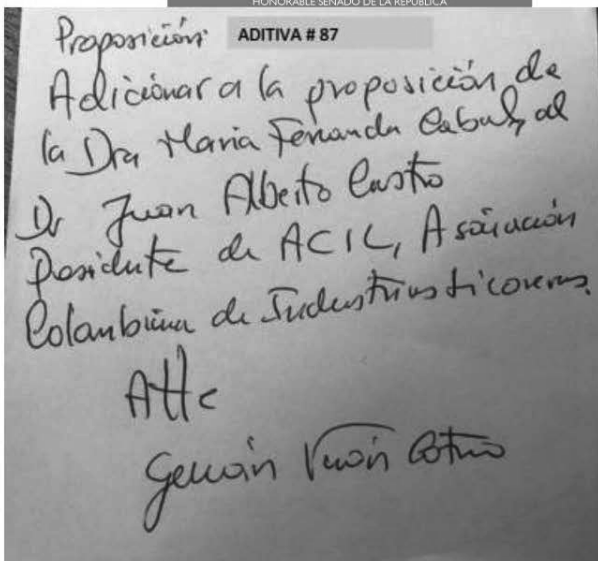 HONORABLE SENADO DE LA REPÚBLICA
Proposición: ADITIVA # 87
Adicionar a la proposición de
la Dra Maria Fernanda Cabal, al
Dr Juan Alberto Castro
Presidente de ACIL, Asociación
Colombiana de Industrias Licoreras.
Atte
Germán Varón Cotrino